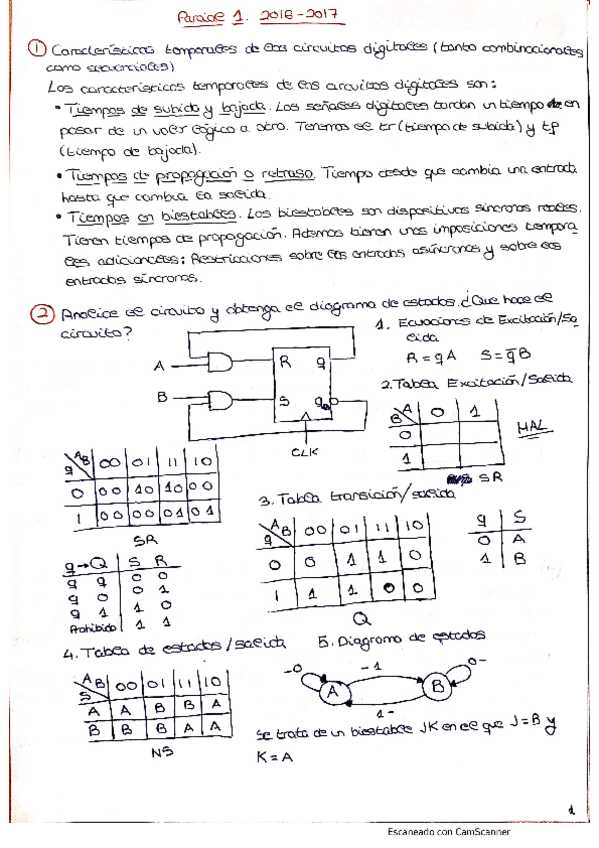 Parcial 1. 2016-2017
① Características temporales de los circuitos digitales (tanto combinacionales
como secuenciales)
Las características temporales de los circuitos digitales son:
• Tiempos de subida y bajada. Las señales digitales tardan un tiempo en
pasar de un valor lógico a otro. Tenemos el tr (tiempo de subida) y tf
(tiempo de bajada).
• Tiempos de propagación o retraso. Tiempo desde que cambia una entrada
hasta que cambia la salida.
• Tiempos en biestables. Los biestables son dispositivos síncronos reales.
Tienen tiempos de propagación. Además tienen unas imposiciones tempora
les adicionales: Restricciones sobre las entradas asíncronas y sobre las
entradas síncronas.
② Analice el circuito y obtenga el diagrama de estados. ¿Que hace el
circuito?
A
B
R q
S q
CLK
1. Ecuaciones de Excitación/Sa
lida
R = qA S = q̅B
2. Tabla Excitación/Salida
A
B 0 1
0
1
MAL
SR
AB
q 00 01 11 10
0 00 10 10 00
1 00 00 01 01
SR
q→Q S R
q q 0 0
q 0 0 1
q 1 1 0
Prohibido 1 1
3. Tabla transición/salida
AB
q 00 01 11 10
0 0 1 1 0
1 1 1 0 0
Q
q S
0 A
1 B
4. Tabla de estados/salida
AB
S 00 01 11 10
A A B B A
B B B A A
NS
5. Diagrama de estados
-0 -1 0-
A B
1-
Se trata de un biestable JK en el que J=B y
K=A
1
Escaneado con CamScanner